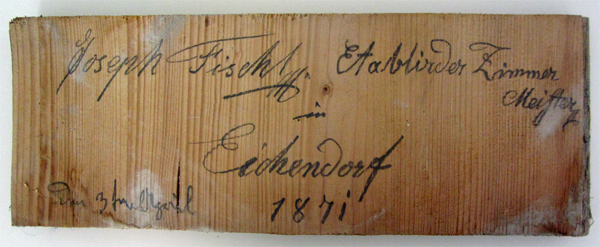 Joseph Fischl Etablirder Zimmer
Meister
in
Eichendorf
1871
Den 3